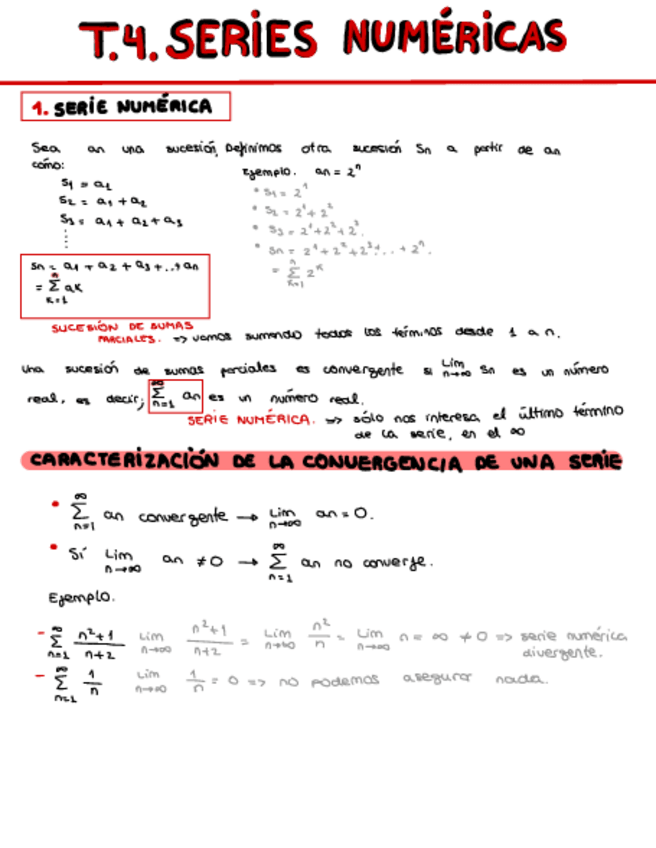 T.4. SERIES NUMÉRICAS
1. SERIE NUMÉRICA
Sea an una sucesión, Definimos otra sucesión Sn a partir de an
como:
Ejemplo. an = 2^n
S1 = a1
S2 = a1 + a2
S3 = a1 + a2 + a3
⋮
Sn = a1 + a2 + a3 + ..+ an
= Σ_{k=1}^{n} ak
• S1 = 2^1
• S2 = 2^1 + 2^2
• S3 = 2^1 + 2^2 + 2^3.
• Sn = 2^1 + 2^2 + 2^3 + .. + 2^n.
= Σ_{k=1}^{n} 2^k
SUCESIÓN DE SUMAS
PARCIALES. => vamos sumando todos los términos desde 1 a n.
Una sucesión de sumas parciales es convergente si Lim_{n→∞} Sn es un número
real, es decir; Σ_{n=1}^{∞} an es un número real.
SERIE NUMÉRICA. => sólo nos interesa el último término
de la serie, en el ∞
CARACTERIZACIÓN DE LA CONVERGENCIA DE UNA SERIE
• Σ_{n=1}^{∞} an convergente → Lim_{n→∞} an = 0.
• Sí Lim_{n→∞} an ≠ 0 → Σ_{n=1}^{∞} an no converge.
Ejemplo.
- Σ_{n=1}^{∞} (n²+1)/(n+2) Lim_{n→∞} (n²+1)/(n+2) = Lim_{n→∞} n²/n = Lim_{n→∞} n = ∞ ≠ 0 => serie numérica
divergente.
- Σ_{n=1}^{∞} 1/n Lim_{n→∞} 1/n = 0 => no podemos asegurar nada.